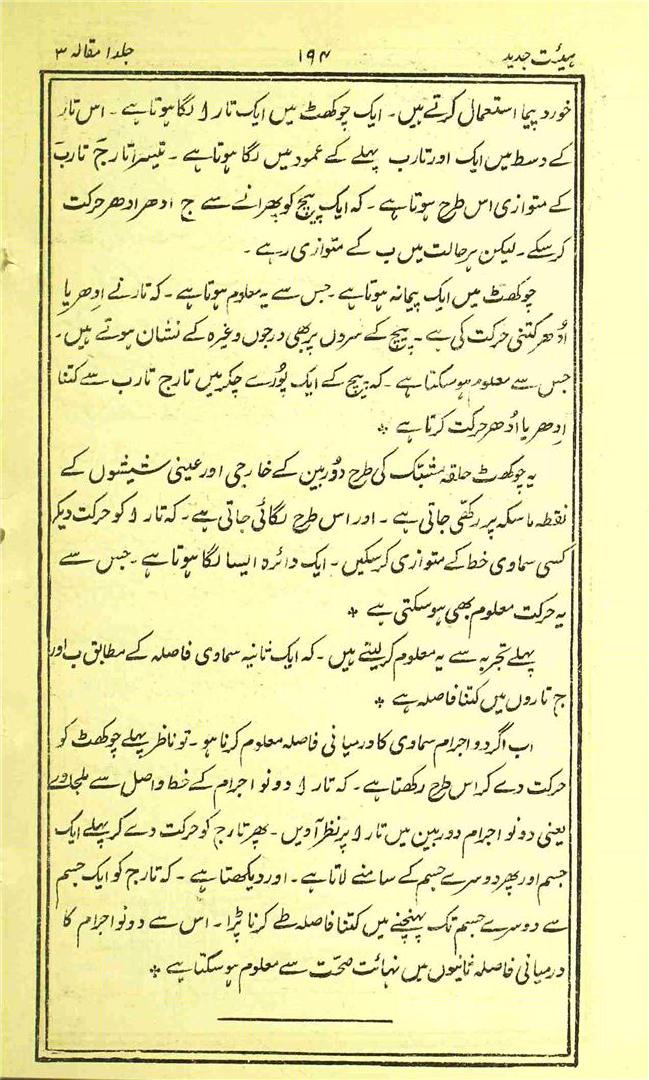 ہیئت جدید ۱۹۴ جلد ۱ مقالہ ۳
خورد پیما استعمال کرتے ہیں۔ ایک چوکھٹ میں ایک تار ا لگا ہوتا ہے۔ اس تار
کے وسط میں ایک اور تار ب پہلے کے عمود میں لگا ہوتا ہے۔ تیسرا تار ج تار ب
کے متوازی اس طرح ہوتا ہے۔ کہ ایک پیچ کو پھرانے سے ج ادھر ادھر حرکت
کر سکے۔ لیکن ہر حالت میں ب کے متوازی رہے۔
چوکھٹ میں ایک پیمانہ ہوتا ہے۔ جس سے یہ معلوم ہوتا ہے۔ کہ تار نے اِدھر یا
اُدھر کتنی حرکت کی ہے۔ پیچ کے سروں پر بھی درجوں وغیرہ کے نشان ہوتے ہیں۔
جس سے معلوم ہو سکتا ہے۔ کہ پیچ کے ایک پُورے چکر میں تار ج تار ب سے کتنا
اِدھر یا اُدھر حرکت کرتا ہے *
یہ چوکھٹ حلقہ مشبّک کی طرح دُوربین کے خارجی اور عینی شیشوں کے
نقطہ ماسکہ پر رکھی جاتی ہے۔ اور اس طرح لگائی جاتی ہے۔ کہ تار ا کو حرکت دیکر
کسی سماوی خط کے متوازی کر سکیں۔ ایک دائرہ ایسا لگا ہوتا ہے۔ جس سے
یہ حرکت معلوم بھی ہو سکتی ہے *
پہلے تجربہ سے یہ معلوم کر لیتے ہیں۔ کہ ایک ثانیہ سماوی فاصلہ کے مطابق ب اور
ج تاروں میں کتنا فاصلہ ہے *
اب اگر دو اجرام سماوی کا درمیانی فاصلہ معلوم کرنا ہو۔ تو ناظر پہلے چوکھٹ کو
حرکت دے کر اس طرح رکھتا ہے۔ کہ تار ا دونو اجرام کے خط واصل سے ملجاوے
یعنی دونو اجرام دوربین میں تار ا پر نظر آویں۔ پھر تار ج کو حرکت دے کر پہلے ایک
جسم اور پھر دوسرے جسم کے سامنے لاتا ہے۔ اور دیکھتا ہے۔ کہ تار ج کو ایک جسم
سے دوسرے جسم تک پہنچنے میں کتنا فاصلہ طے کرنا پڑا۔ اس سے دونو اجرام کا
درمیانی فاصلہ ثانیوں میں نہائت صحّت سے معلوم ہو سکتا ہے *